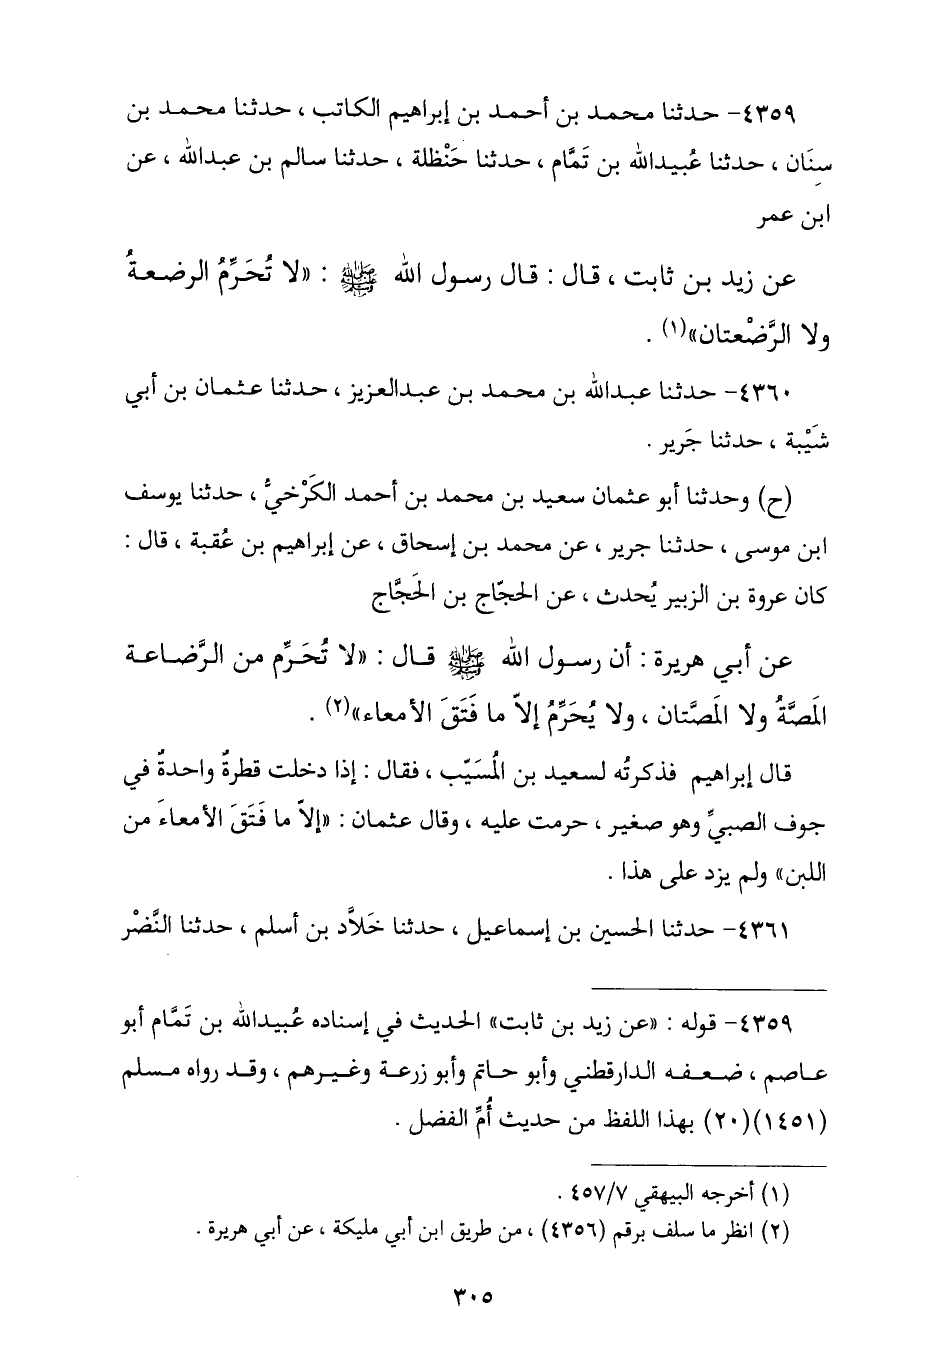 ٤٣٥٩- حدثنا محمد بن أحمد بن إبراهيم الكاتب ، حدثنا محمد بن
سِنَان ، حدثنا عُبيدالله بن تَمَّام ، حدثنا حَنْظلة ، حدثنا سالم بن عبدالله ، عن
ابن عمر
عن زيد بن ثابت ، قال : قال رسول الله ﷺ : «لا تُحَرِّمُ الرضعةُ
ولا الرَّضْعتان»(١) .
٤٣٦٠- حدثنا عبدالله بن محمد بن عبدالعزيز ، حدثنا عثمان بن أبي
شَيْبة ، حدثنا جَرير .
(ح) وحدثنا أبو عثمان سعيد بن محمد بن أحمد الكَرْخيُّ ، حدثنا يوسف
ابن موسى ، حدثنا جرير ، عن محمد بن إسحاق ، عن إبراهيم بن عُقبة ، قال :
كان عروة بن الزبير يُحدث ، عن الحجّاج بن الحَجَّاج
عن أبي هريرة : أن رسول الله ﷺ قال : «لا تُحَرِّم من الرَّضاعة
المَصَّةُ ولا المَصَّتان ، ولا يُحَرِّمُ إلاّ ما فَتَقَ الأمعاء»(٢) .
قال إبراهيم فذكرتُه لسعيد بن المُسَيّب ، فقال : إذا دخلت قطرةٌ واحدةٌ في
جوف الصبيِّ وهو صغير ، حرمت عليه ، وقال عثمان : «إلاّ ما فَتَقَ الأمعاءَ من
اللبن» ولم يزد على هذا .
٤٣٦١- حدثنا الحسين بن إسماعيل ، حدثنا خَلاَّد بن أسلم ، حدثنا النَّضْر
٤٣٥٩- قوله : «عن زيد بن ثابت» الحديث في إسناده عُبيدالله بن تَمَّام أبو
عاصم ، ضعفه الدارقطني وأبو حاتم وأبو زرعة وغيرهم ، وقد رواه مسلم
(١٤٥١)(٢٠) بهذا اللفظ من حديث أُمِّ الفضل .
(١) أخرجه البيهقي ٤٥٧/٧ .
(٢) انظر ما سلف برقم (٤٣٥٦) ، من طريق ابن أبي مليكة ، عن أبي هريرة .
٣٠٥